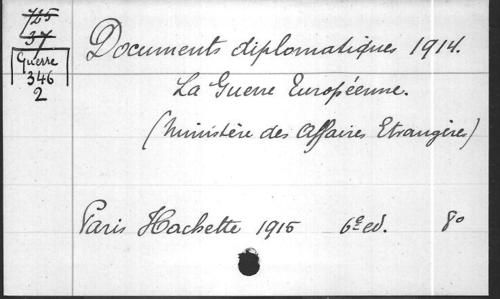 765
37
Guerre
346
2
Documents diplomatiques 1914.
La Guerre Européenne.
(Ministère des Affaires Etrangères)
Paris Hachette 1915 6e ed. 8o